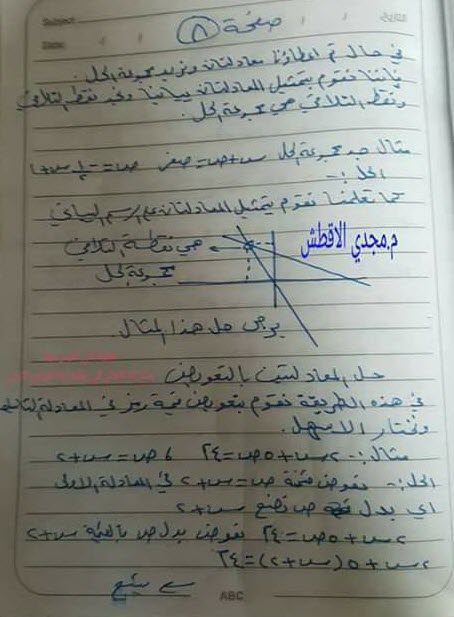 Subject
التاريخ
Date
صفحة (٨)
في حال تم اعطاؤنا معادلتان ونريد مجموعة الحل.
فإننا نقوم بتمثيل المعادلتان بيانياً ونجد نقطة التلاقي
ونقطة التلاقي هي مجموعة الحل.
مثال جد مجموعة الحل س+ص=صفر
الحل:-
كما تعلمنا نقوم بتمثيل المعادلتان على الرسم البياني
هي نقطة التلاقي
م.مجدي الاقطش
مجموعة الحل
يرجى حل هذا المثال
حل المعادلتين بالتعويض
في هذه الطريقة نقوم بتعويض قيمة رمز في المعادلة الثانية
ونختار الاسهل.
مثال:- ٢س+٥ص=٢٤ ، ص=س+٢
الحل:- نعوض قيمة ص=س+٢ في المعادلة الاولى
اي بدل ص نضع س+٢
٢س+٥ص=٢٤ نعوض بدل ص بالقيمة س+٢
٢س+٥(س+٢)=٢٤
يتبع
ABC